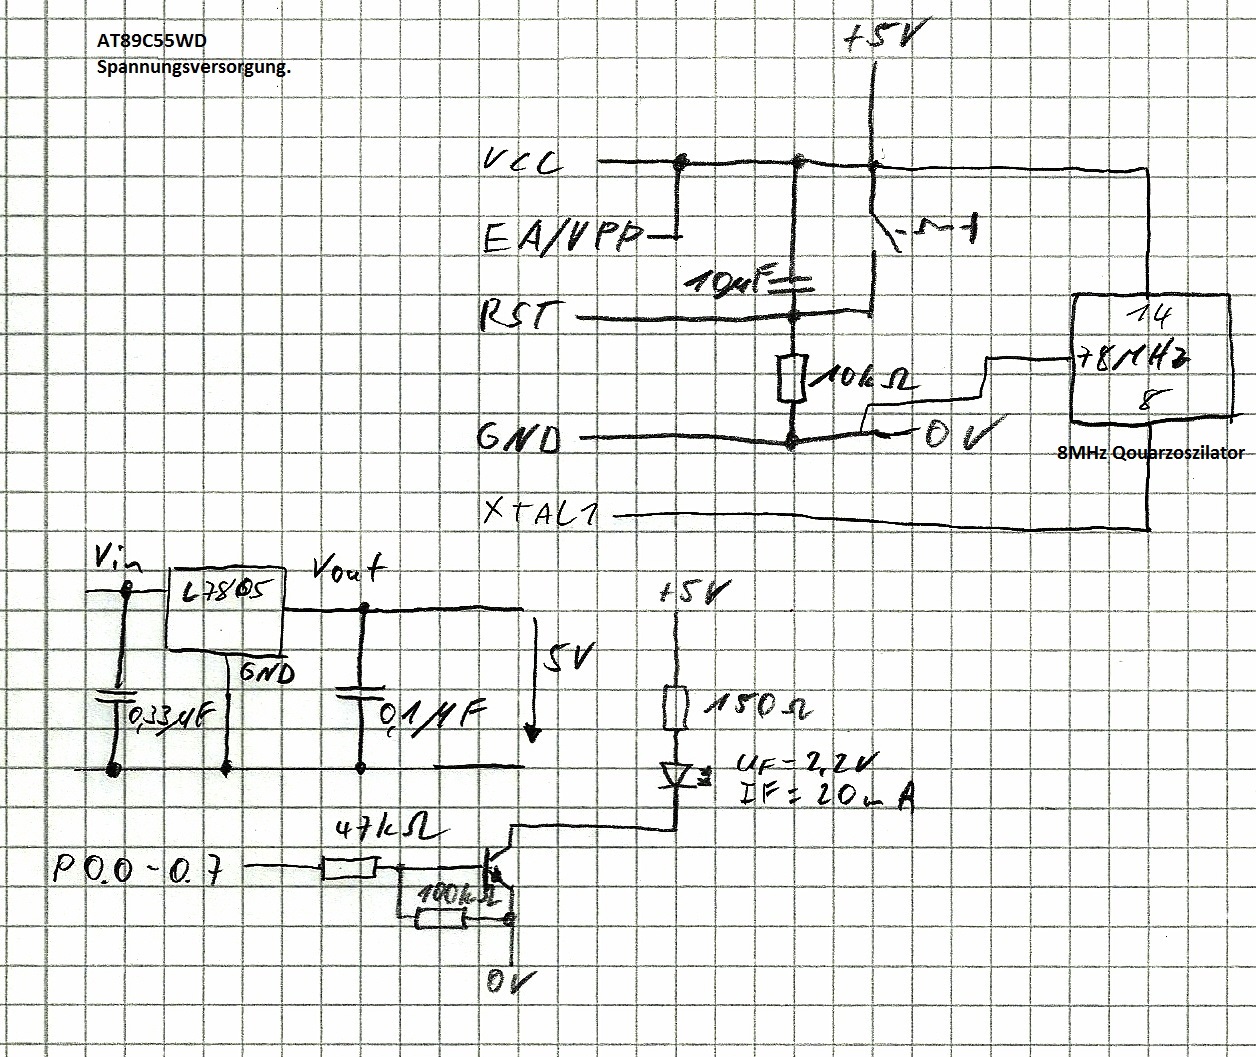 AT89C55WD
Spannungsversorgung.
+5V
VCC
EA/VPP
10µF
RST
14
78MHz
8
10kΩ
GND
0V
8MHz Qouarzoszilator
XTAL1
Vin
L7805
Vout
GND
5V
0,33µF
0,1µF
+5V
150Ω
UF=2,2V
IF=20mA
47kΩ
P0.0-0.7
100kΩ
0V